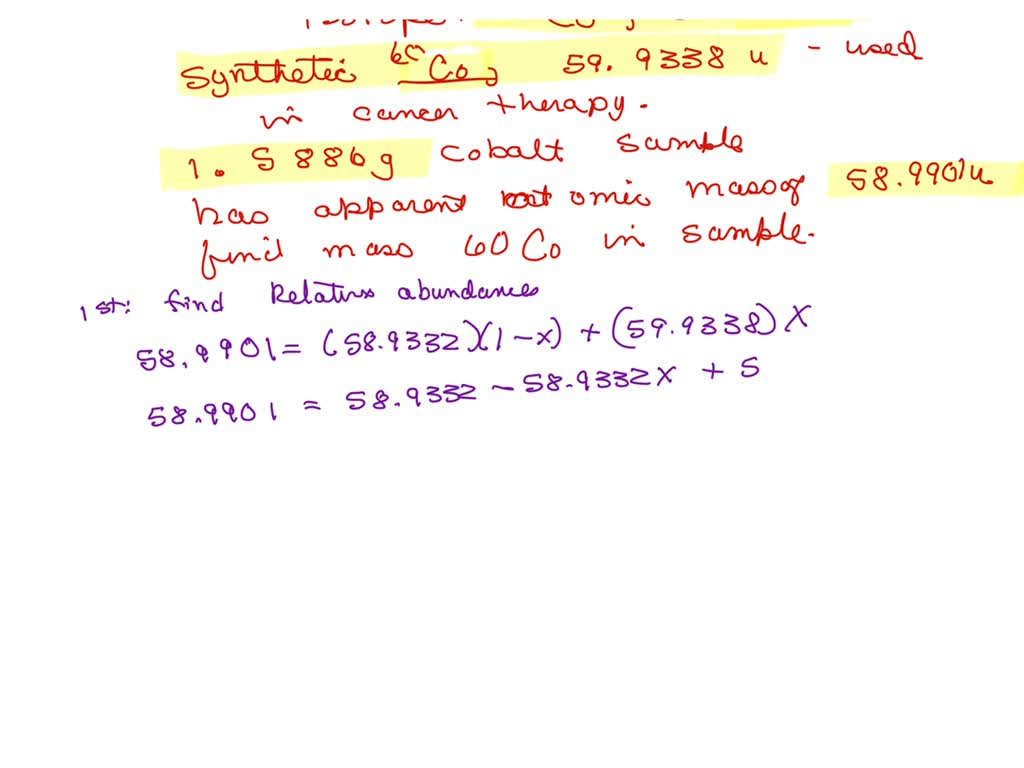 Synthetic 60 Co, 59.9338 u - used
in cancer therapy.
1.5886g cobalt sample
has apparent atomic mass of 58.9901u
find mass 60 Co in sample.
1st: find Relative abundances
58.9901 = (58.9332)(1-x) + (59.9338) X
58.9901 = 58.9332 - 58.9332x + 5